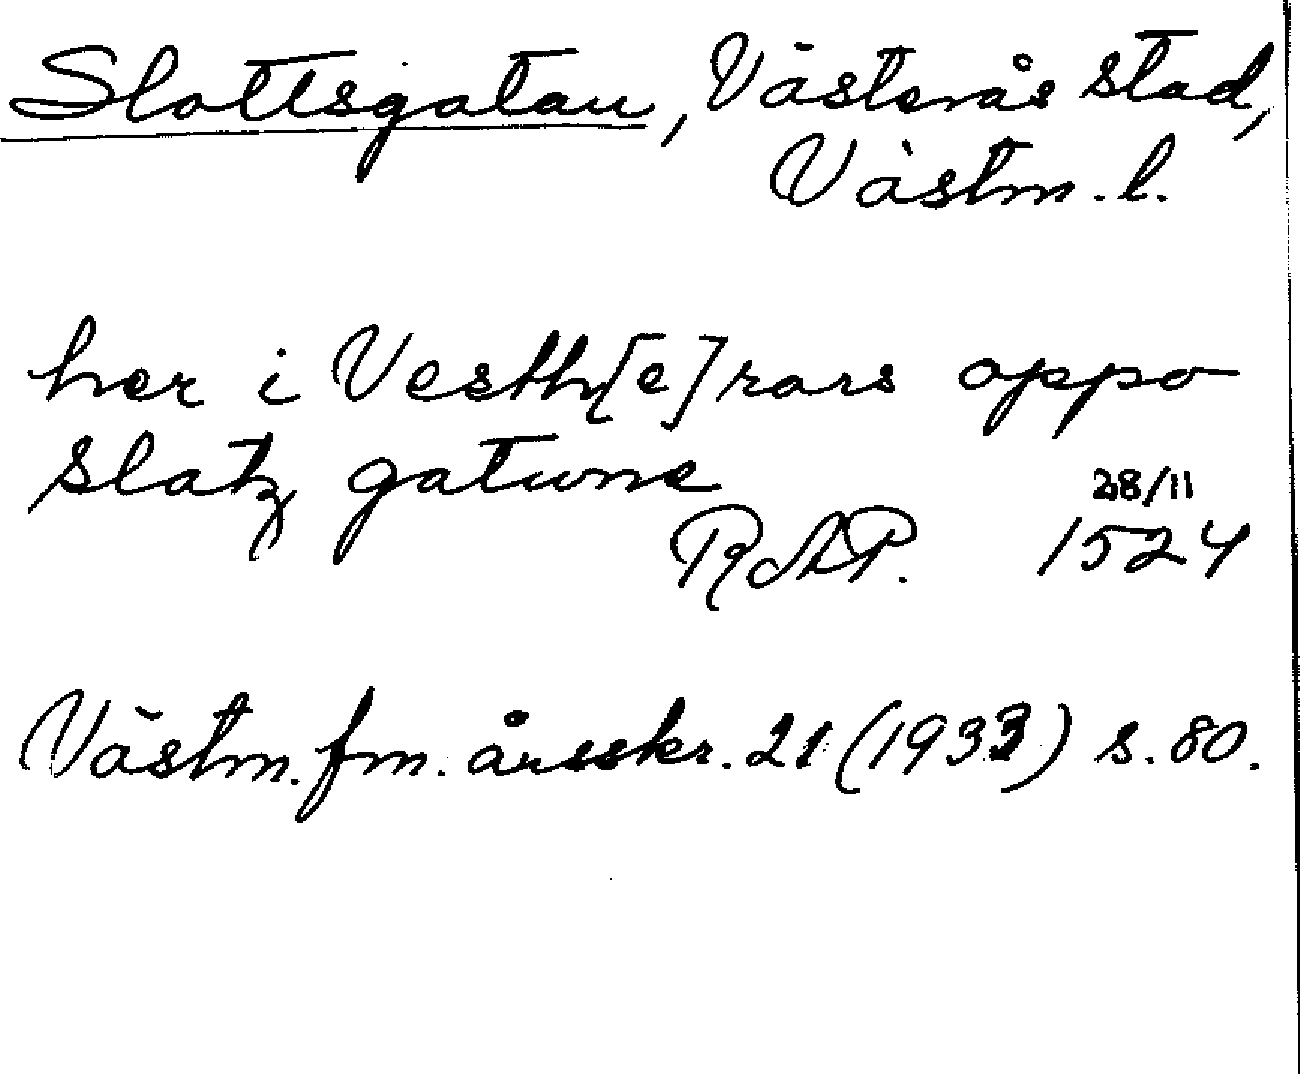 Slottsgatan, Västerås stad,
Västm. l.
her i Vesth[e]rars oppo
slatz gatune
28/11
RAP. 1524
Västm. fm. årsskr. 21 (1933) s. 80.